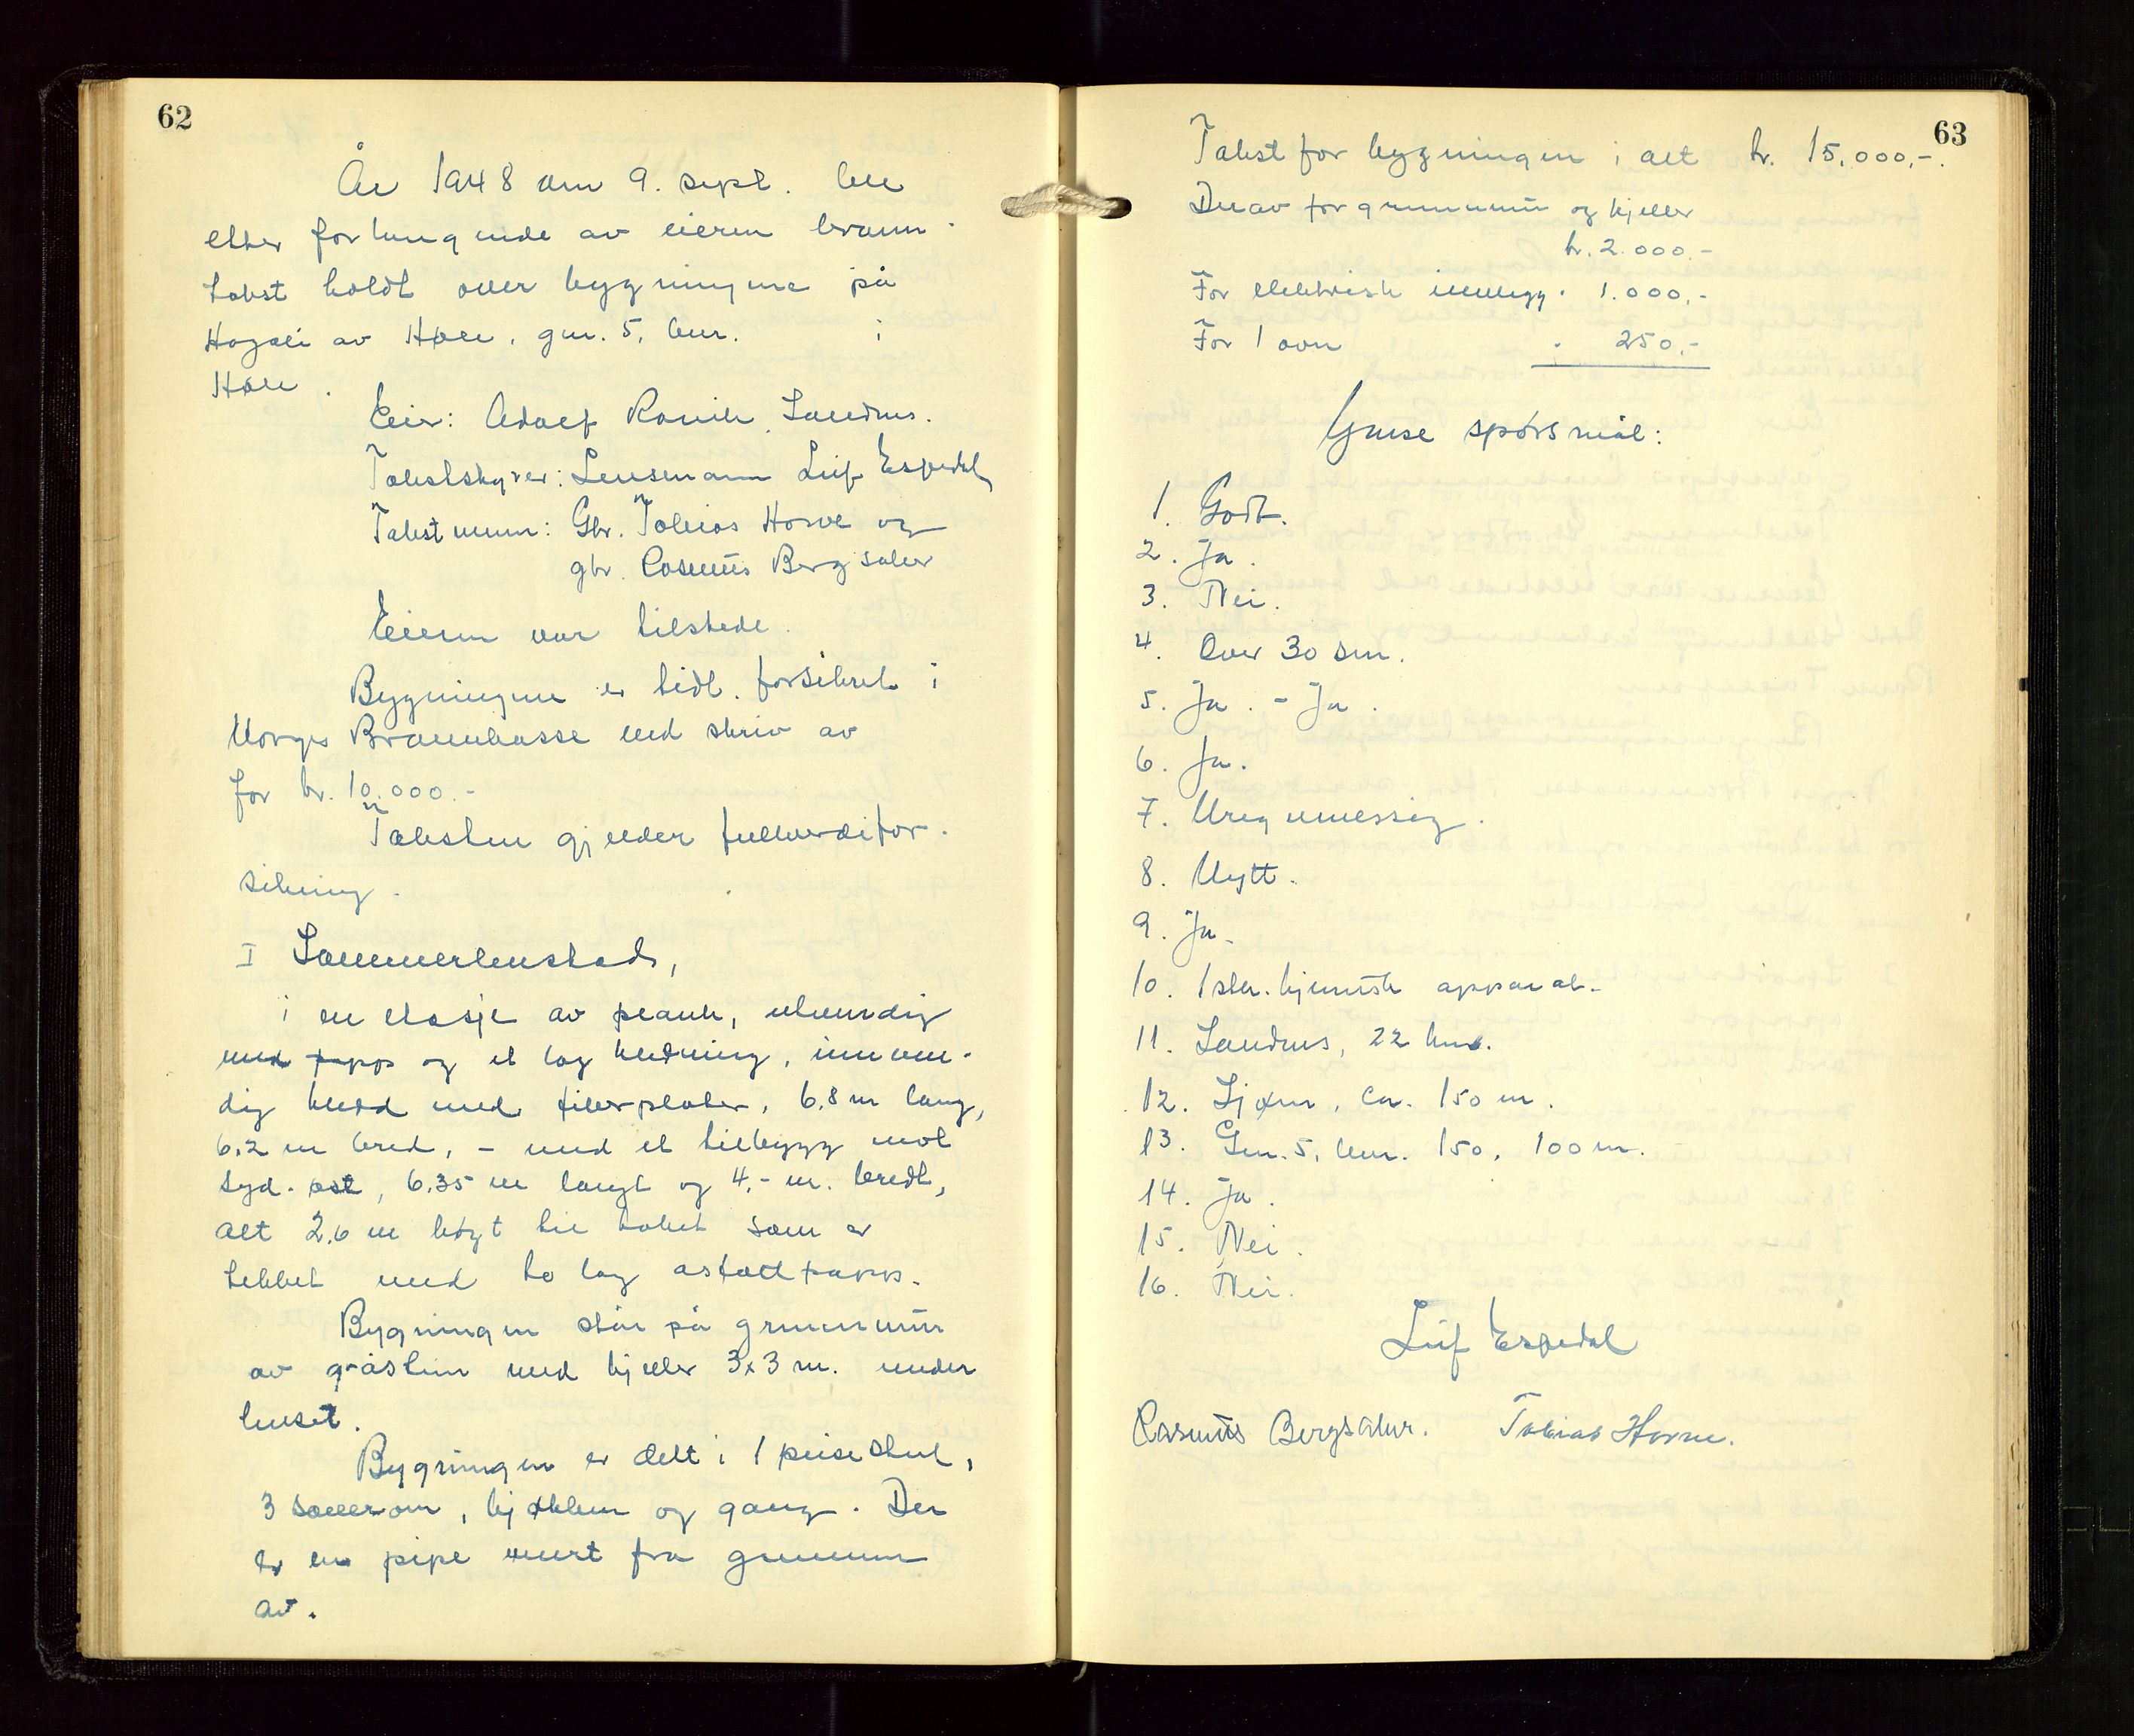 62
År 1948 den 9. sept. ble
etter forlangende av eieren brann-
takst holdt over bygningene på
Hogali av Høle, gnr. 5, bnr. i
Høle.
Eier: Adolf Ravik, Sandnes.
Takstskyver: Lensmann Leif Espedal,
Takstmenn: Gbr. Tobias Horve og
gbr. Rasmus Bergsaker
Eieren var tilstede.
Bygningene er tidl. forsikret i
Norges Brannkasse ved skriv av
for kr. 10.000.-
Taksten gjelder fullverdifor-
sikring.
I Sommerlensted,
i en etasje av plank, utvendig
med papp og et lag kledning, innven-
dig kledd med fiberplater, 6.8 m lang,
6.2 m bred, - med et tilbygg mot
syd-øst, 6.35 m langt og 4,- m. bredt,
alt 2.6 m høgt til taket som er
tekket med to lag asfaltpapp.
Bygningen står på grunnmur
av gråstein med kjeller 3x3 m. under
huset.
Bygningen er delt i 1 peisestue,
3 soverom, kjøkken og gang. Der
er en pipe murt fra grunnen
av.
63
Takst for bygningen i alt kr. 15.000,-.
Derav for grunnmur og kjeller
kr. 2.000.-
For elektrisk innlegg " 1.000,-
For 1 ovn " 250.-
Gmse spørsmål:
1. Godt.
2. Ja.
3. Nei.
4. Over 30 sm.
5. Ja. - Ja.
6. Ja.
7. Uregmessig.
8. Nytt.
9. Ja.
10. 1 stk. kjemisk apparat.
11. Sandnes, 22 km.
12. Sjøen, ca. 150 m.
13. Gnr. 5, bnr. 150, 100 m.
14. Ja.
15. Nei.
16. Nei.
Leif Espedal
Rasmus Bergsaker. Tobias Horve.